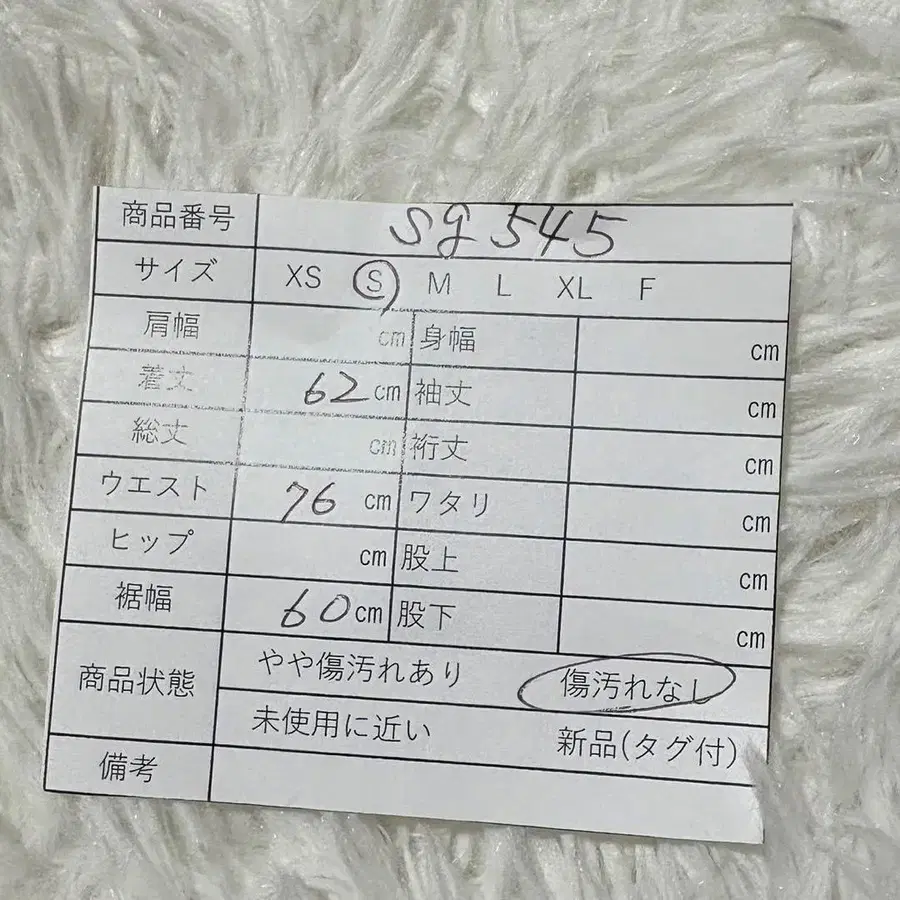 商品番号 sg545
サイズ XS S M L XL F
肩幅 cm 身幅 cm
着丈 62cm 袖丈 cm
総丈 cm 裄丈 cm
ウエスト 76cm ワタリ cm
ヒップ cm 股上 cm
裾幅 60cm 股下 cm
商品状態 やや傷汚れあり 傷汚れなし
未使用に近い 新品(タグ付)
備考